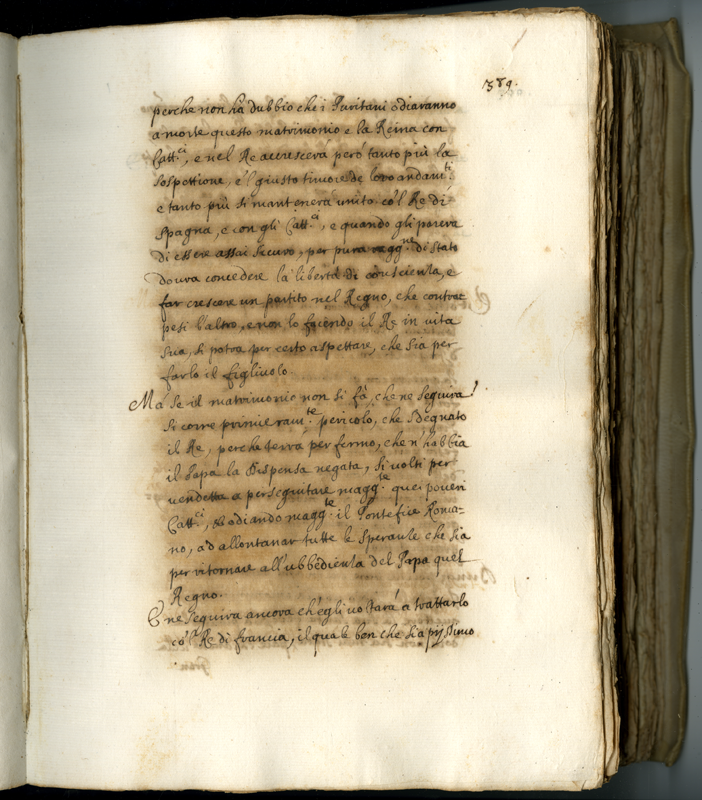 389.
perche non ha dubbio che i Puritani odiaranno
a morte questo matrimonio e la Reina con
Catt.ci, e nel Re accrescerà però tanto più la
sospettione, e'l giusto timore de loro andam.ti
e tanto più si mantenerà unito co'l Re di
Spagna, e con gli Catt.ci, e quando gli pareva
di essere assai sicuro, per pura ragg.ne di stato
dovra concedere la libertà di conscienza, e
far crescere un partito nel Regno, che contrap
pesi l'altro, e non lo facendo il Re in vita
sua, si potra per certo aspettare, che sia per
farlo il figlivolo.
Mà se il matrimonio non si fà, che ne seguirà?
Si corre primieram.te pericolo, che sdegnato
il Re, perche terrà per fermo, che n'habbia
il Papa la dispensa negata, si volti per
vendetta a perseguitare magg.te quei poveri
Catt.ci, et odiando magg.te il Pontefice Roma-
no, ad allontanar tutte le speranze che sia
per ritornare all'ubbedienza del Papa quel
Regno.
E ne seguirà ancora ch'egli voltarà a trattarlo
co'l Re di francia, il quale ben che sia pijssimo